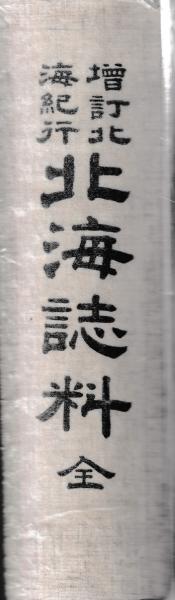 增訂北
海紀行
北海誌料
全